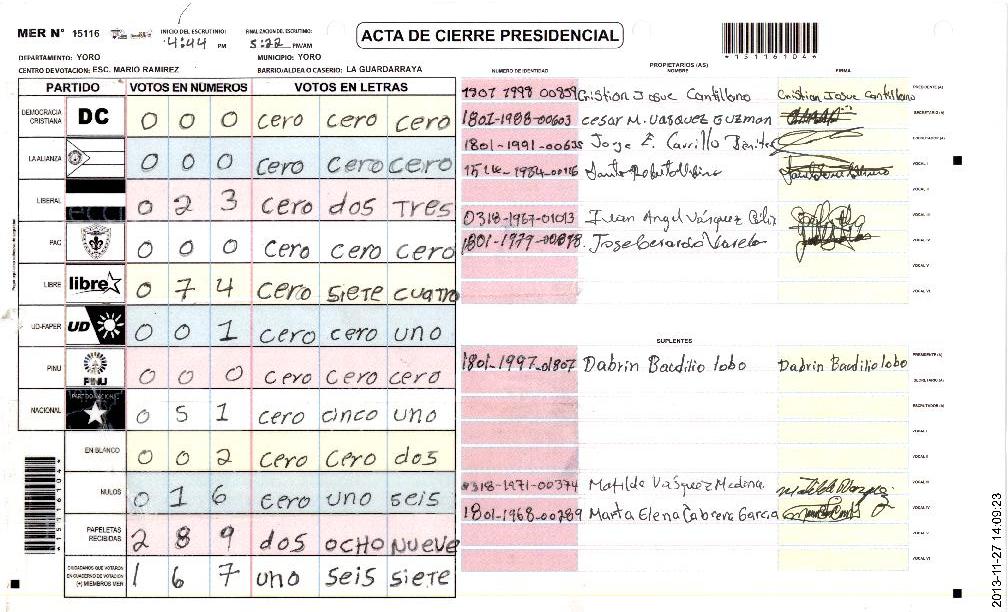 MER N° 15116
INICIO DEL ESCRUTINIO: 4:44 PM
FINALIZACION DEL ESCRUTINIO: 5:22 PM/AM
ACTA DE CIERRE PRESIDENCIAL
*15116104*
DEPARTAMENTO: YORO
MUNICIPIO: YORO
CENTRO DE VOTACION: ESC. MARIO RAMIREZ
BARRIO/ALDEA O CASERIO: LA GUARDARRAYA
PARTIDO VOTOS EN NÚMEROS VOTOS EN LETRAS
DEMOCRACIA CRISTIANA DC 0 0 0 cero cero cero
LA ALIANZA 0 0 0 cero cero cero
LIBERAL 0 2 3 cero dos tres
PAC 0 0 0 cero cero cero
LIBRE libre 0 7 4 cero siete cuatro
UD-FAPER UD 0 0 1 cero cero uno
PINU PINU 0 0 0 cero cero cero
NACIONAL 0 5 1 cero cinco uno
EN BLANCO 0 0 2 cero cero dos
NULOS 0 1 6 cero uno seis
PAPELETAS RECIBIDAS 2 8 9 dos ocho nueve
CIUDADANOS QUE VOTARON EN CUADERNO DE VOTACION (+) MIEMBROS MER 1 6 7 uno seis siete
*15116104*
PROPIETARIOS (AS)
NUMERO DE IDENTIDAD NOMBRE FIRMA
1807 1998 00859 Cristian Josue Cantillano Cristian Josue Cantillano PRESIDENTE (A)
1801-1988-00603 Cesar M. Vasquez Guzman SECRETARIO (A)
1801-1991-00635 Jorge E. Carrillo Benites ESCRUTADOR (A)
VOCAL I
VOCAL II
0318-1967-01013 Juan Angel Vásquez VOCAL III
1801-1977-00898 Jose Gerardo Varela VOCAL IV
VOCAL V
VOCAL VI
SUPLENTES
1801-1997-01807 Dabrin Baudilio lobo Dabrin Baudilio lobo PRESIDENTE (A)
SECRETARIO (A)
ESCRUTADOR (A)
VOCAL I
VOCAL II
0318-1971-00374 Matilde Vásquez Medina VOCAL III
1801-1968-00789 Marta Elena Cabrera Garcia VOCAL IV
VOCAL V
VOCAL VI
2013-11-27 14:09:23